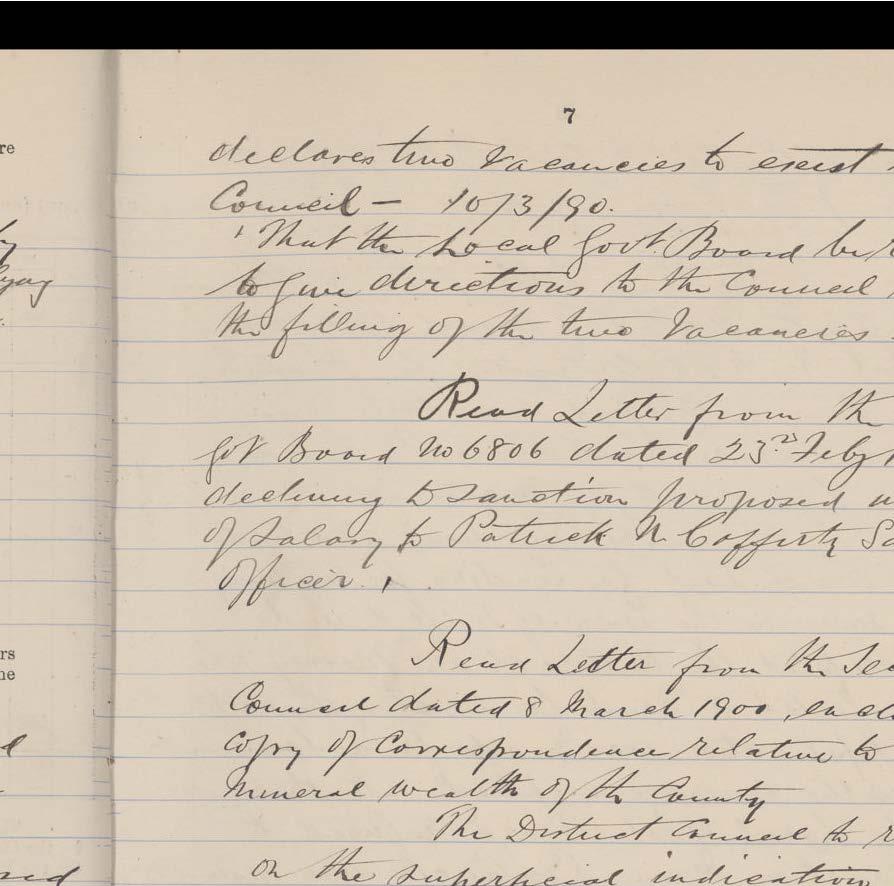 re
7
declares two Vacancies to exist
Council — 10/3/90.
'That the Local Govt. Board be
to give directions to the Council
the filling of the two Vacancies
lying
Read Letter from the
Gov Board No 6806 dated 23rd Feby
declining to sanction proposed
of Salary to Patrick McCafferty
Officer.
rs
ne
Read Letter from the Sec
Council dated 8 March 1900, encl
copy of Correspondence relative to
Mineral wealth of the County
The District Council to
on the superficial indication